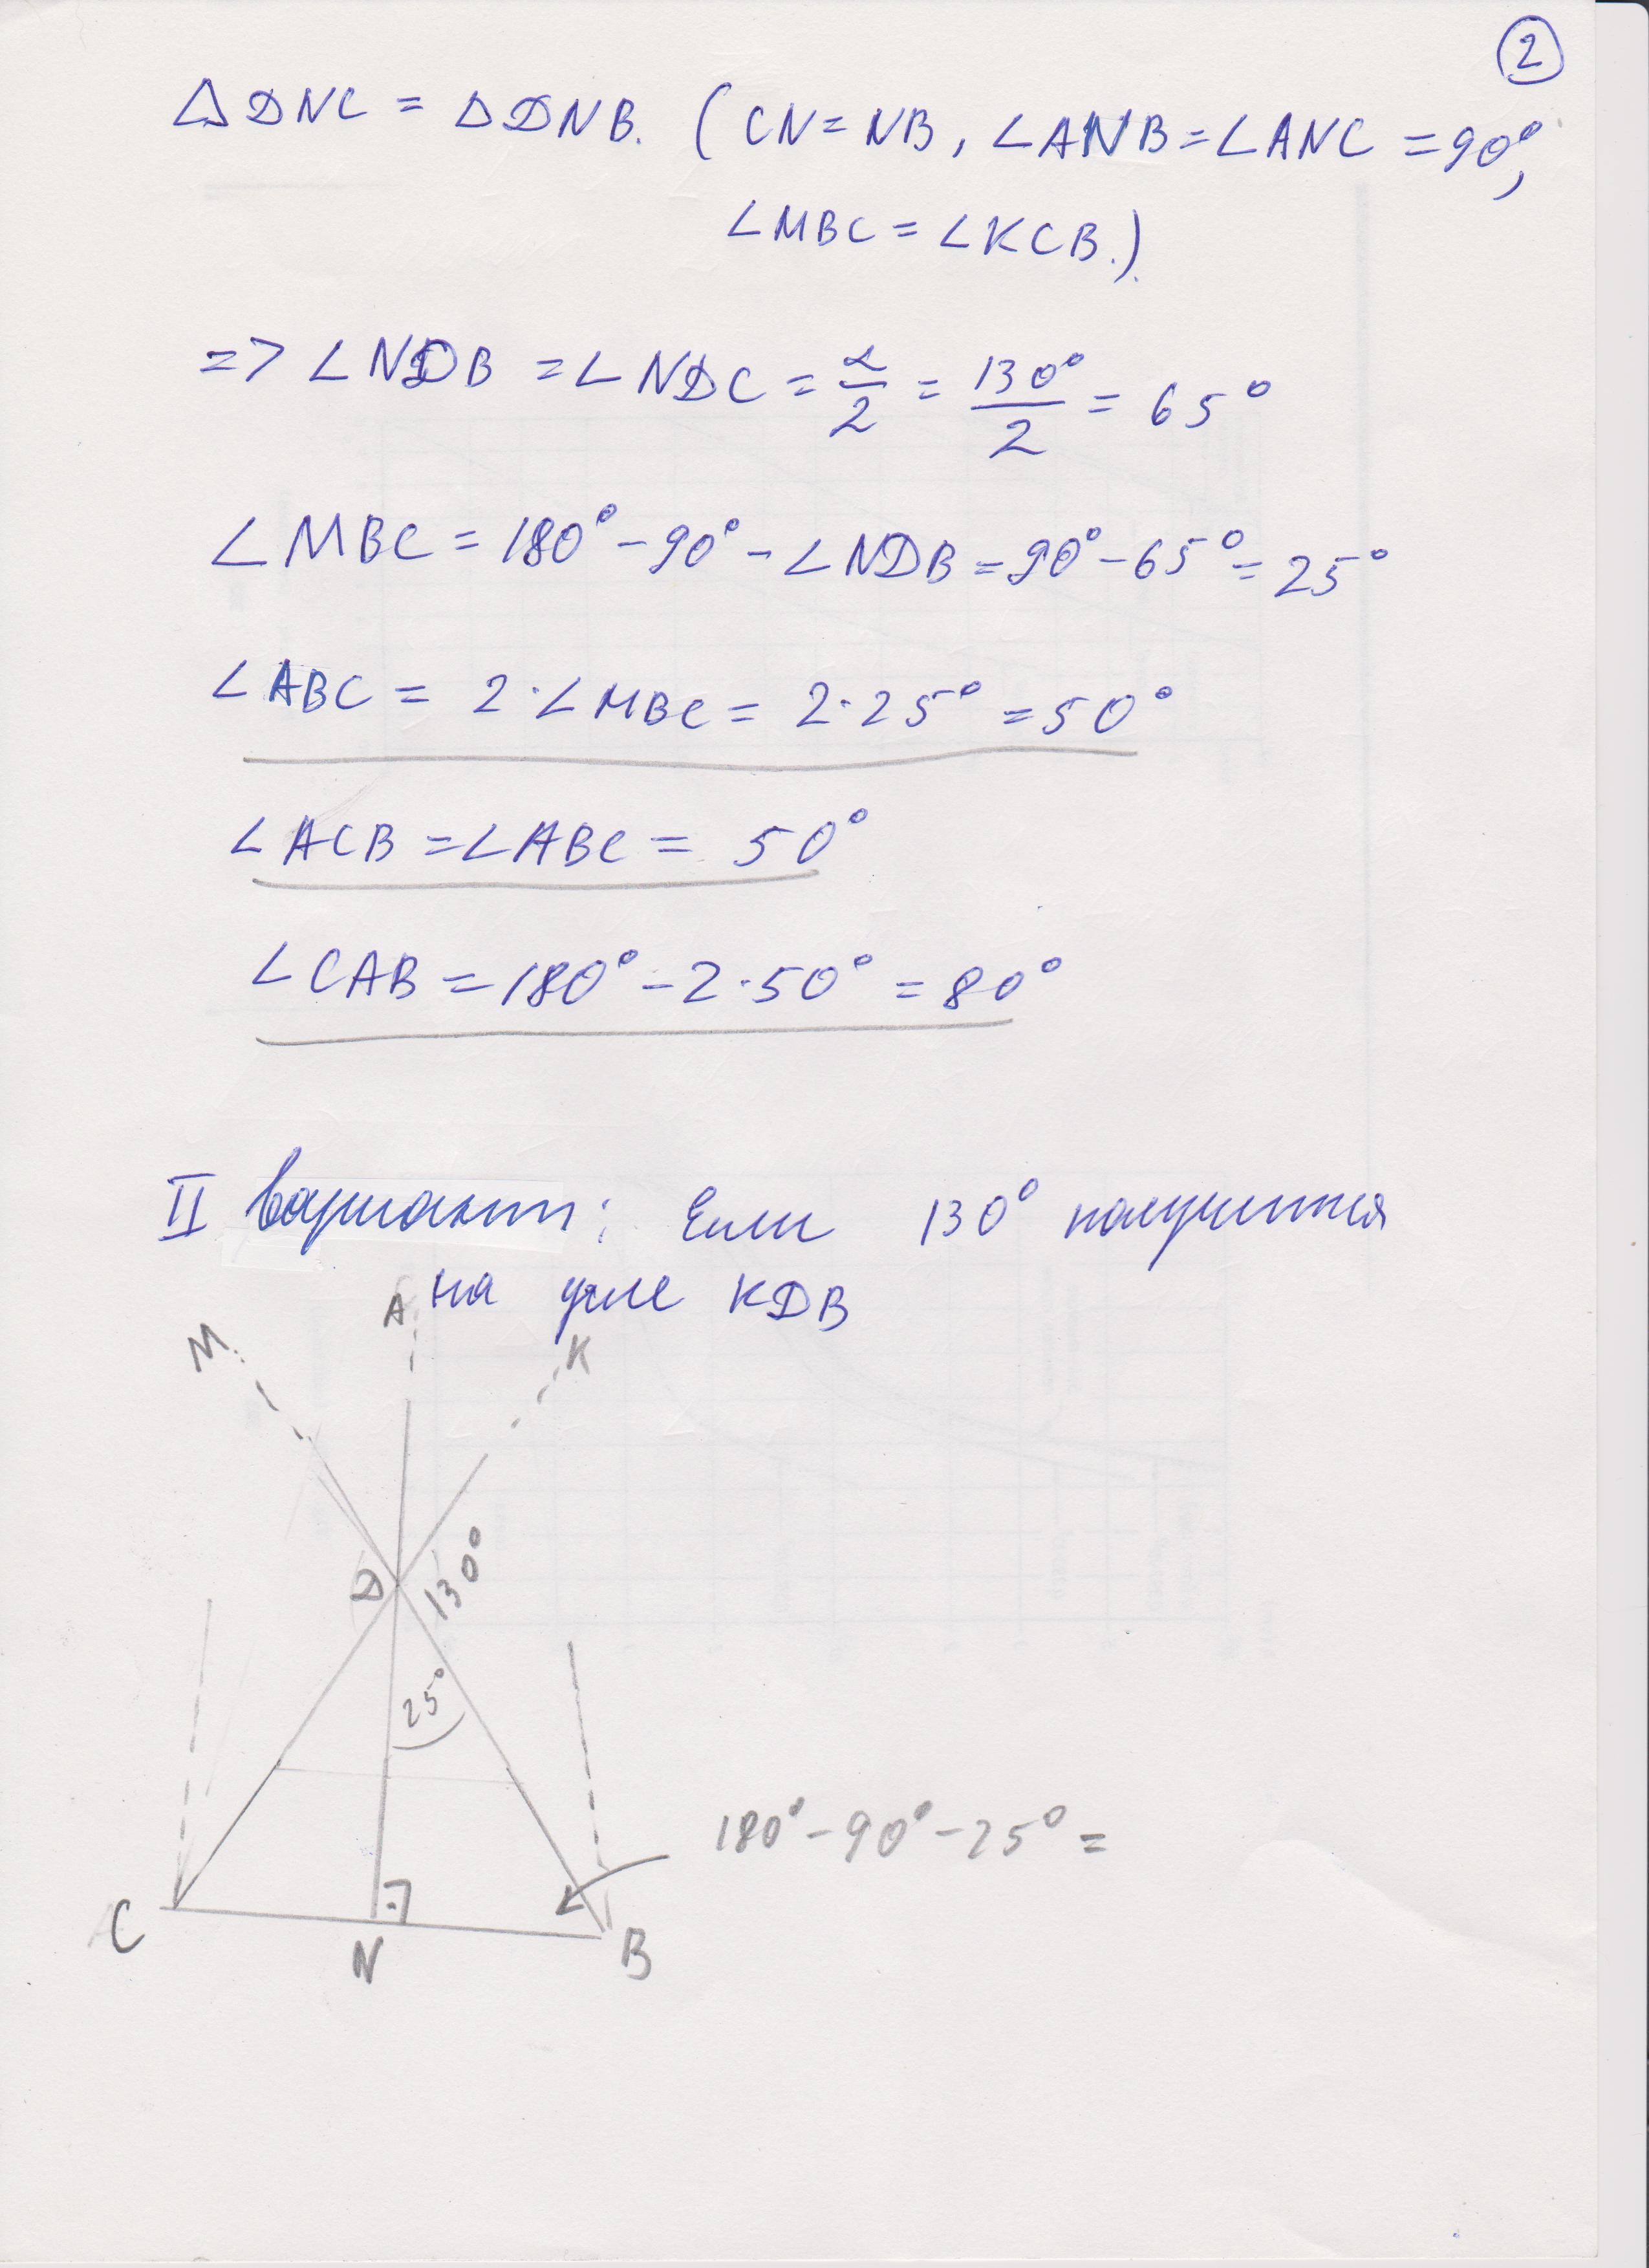 2
△DNC = △DNB. (CN = NB, ∠ANB = ∠ANC = 90°,
∠MBC = ∠KCB.).
=> ∠NDB = ∠NDC = α/2 = 130°/2 = 65°
∠MBC = 180° - 90° - ∠NDB = 90° - 65° = 25°
∠ABC = 2·∠MBC = 2·25° = 50°
∠ACB = ∠ABC = 50°
∠CAB = 180° - 2·50° = 80°
II вариант: Если 130° получится
на угле KDB
A
M
K
D
130°
25°
180° - 90° - 25° =
C
N
B